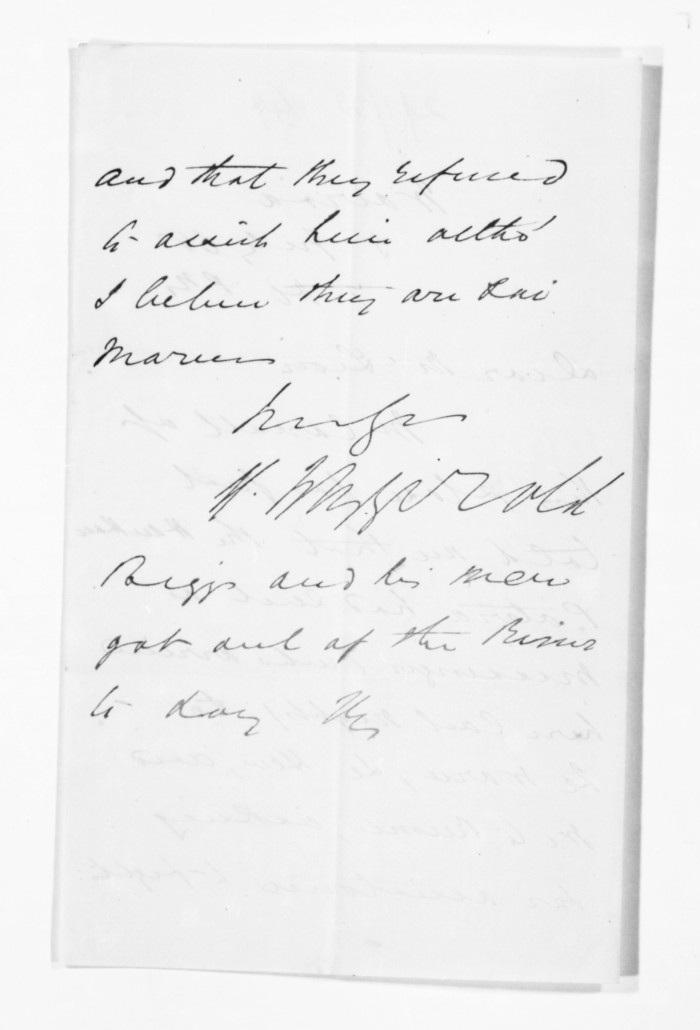 and that they refused
to assist him altho'
I believe they are Kai
Marus
Yrs
H. Fitzgerald
Biggs and his men
got out of the River
to day